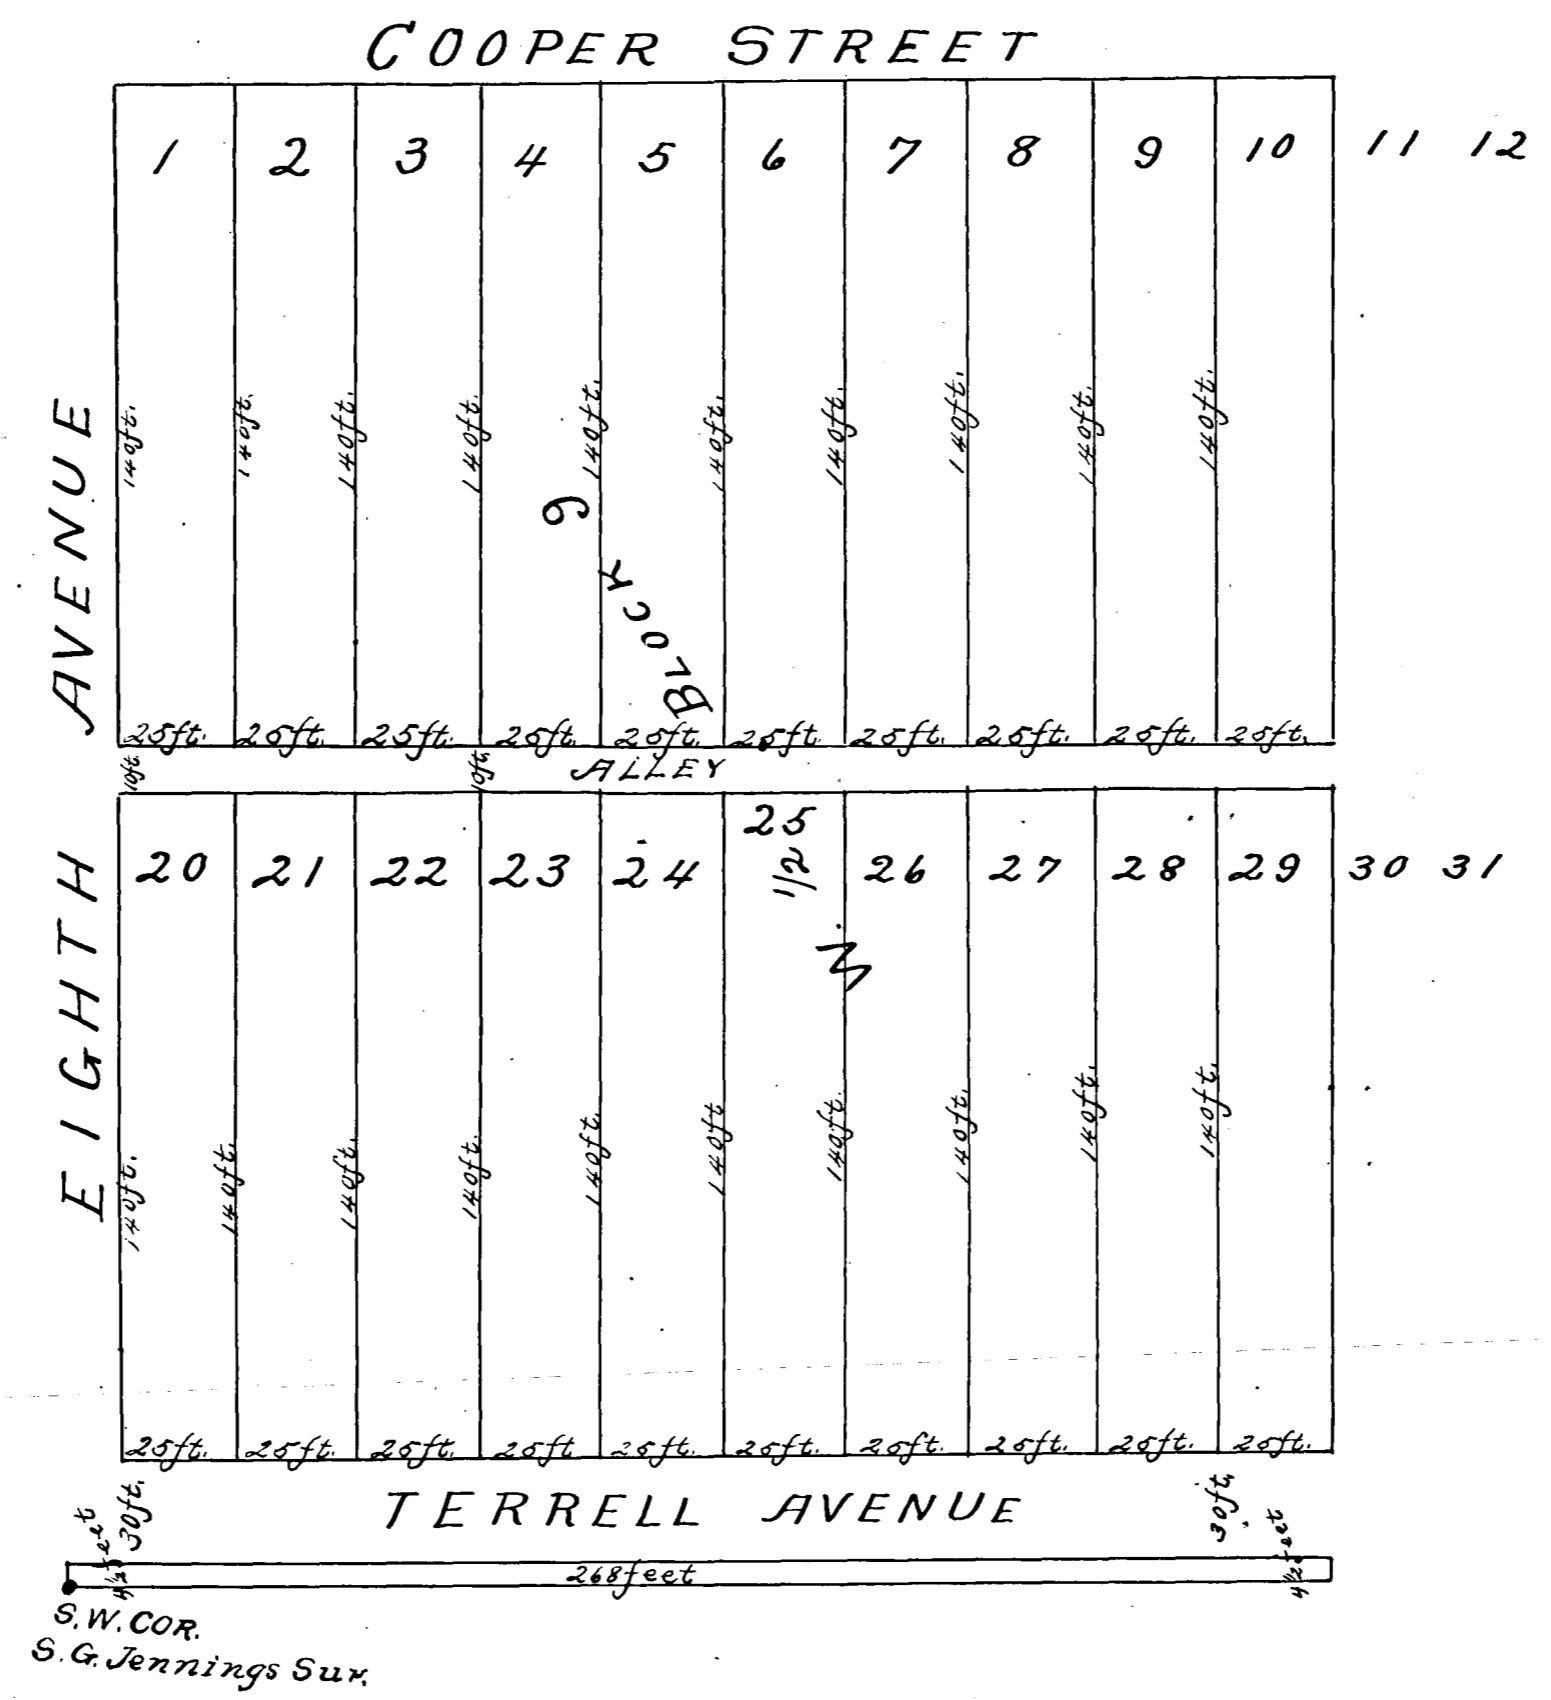 COOPER STREET
1 2 3 4 5 6 7 8 9 10 11 12
140ft. 140ft. 140ft. 140ft. 140ft. 140ft. 140ft. 140ft. 140ft. 140ft.
BLOCK 9
25ft. 25ft. 25ft. 25ft. 25ft. 25ft. 25ft. 25ft. 25ft. 25ft.
10ft. 10ft. ALLEY
20 21 22 23 24 25 26 27 28 29 30 31
W. 1/2
140ft. 140ft. 140ft. 140ft. 140ft. 140ft 140ft. 140ft. 140ft. 140ft.
25ft. 25ft. 25ft. 25ft 25ft. 25ft. 25ft. 25ft. 25ft. 25ft.
EIGHTH AVENUE
TERRELL AVENUE
30ft. 30ft.
4 1/2 feet 268feet 4 1/2 feet
S.W. COR.
S.G. Jennings Sur.